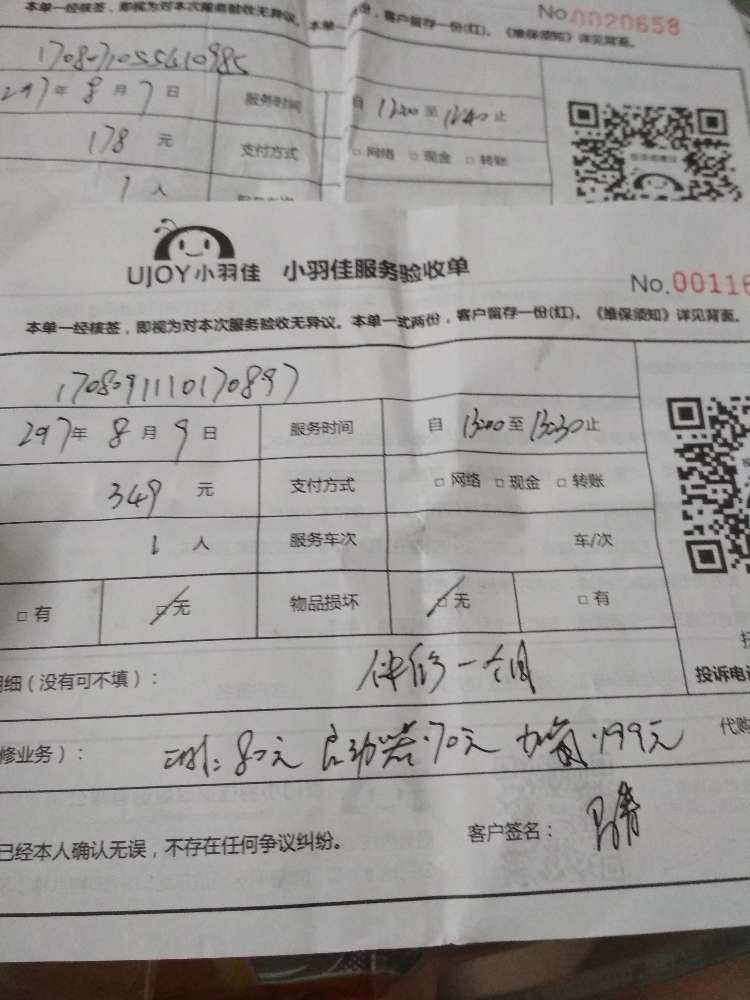 本单一经核签，即视为对本次服务验收无异议。本单一
份，客户留存一份(红)。《维保须知》详见背面。
No.0020658
1708071055610985
2017年 8 月 7 日 服务时间 自 12:00 至 12:40 止
178 元 支付方式 □ 网络 □ 现金 □ 转账
1 人
UJOY小羽佳 小羽佳服务验收单
No.00116
本单一经核签，即视为对本次服务验收无异议。本单一式两份，客户留存一份(红)。《维保须知》详见背面。
17080911101 70897
2017年 8 月 9 日 服务时间 自 13:00 至 13:30 止
349 元 支付方式 □ 网络 □ 现金 □ 转账
1 人 服务车次 车/次
□ 有 □ 无 物品损坏 □ 无 □ 有
明细（没有可不填）： 保修一个月
投诉电话
修业务）： 80元 启动器·70元 加氟·199元 代购
已经本人确认无误，不存在任何争议纠纷。 客户签名：